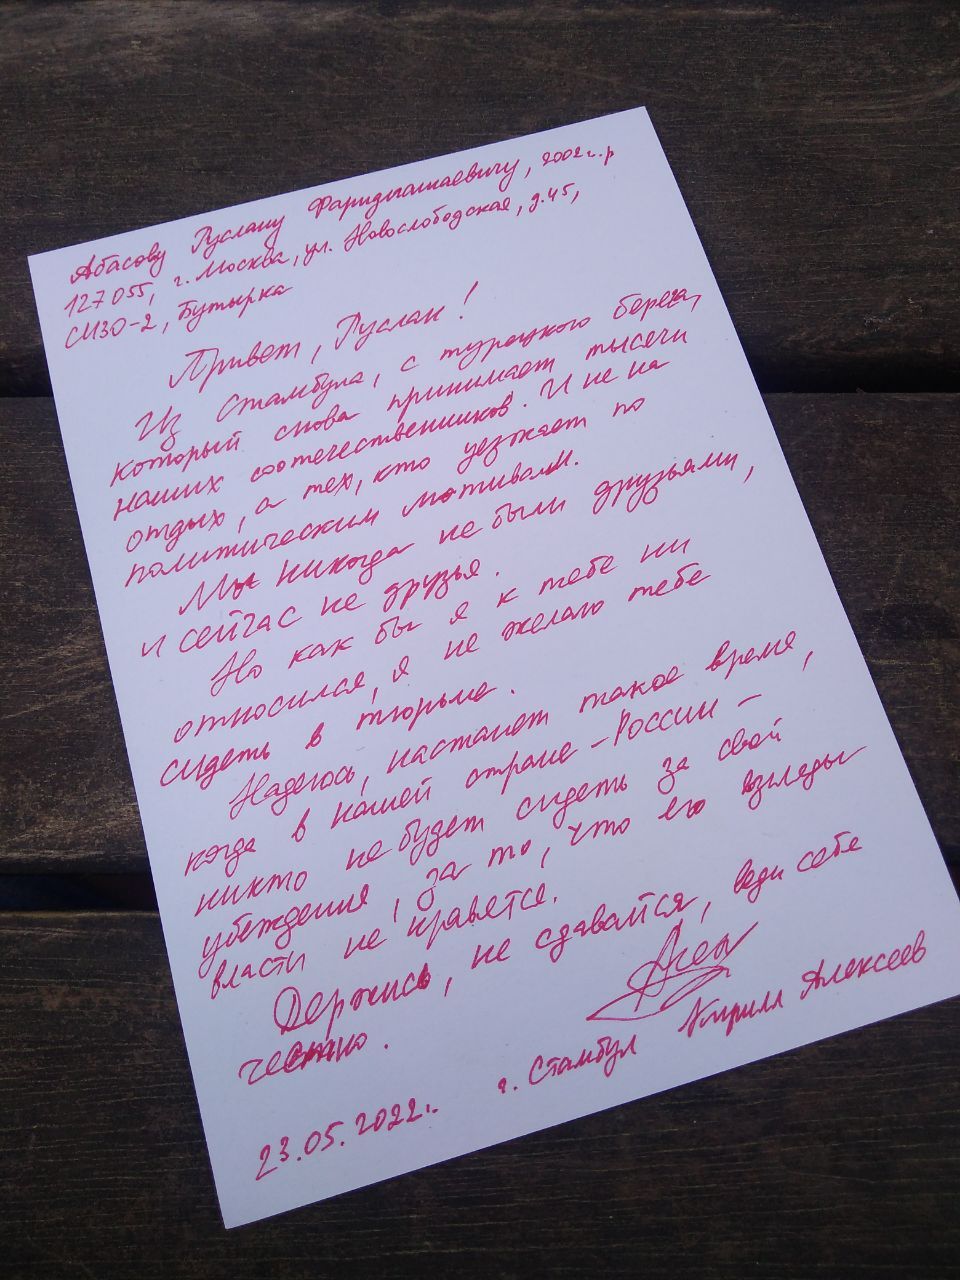 Абасову Руслану Фаридпашаевичу, 2002 г.р
127055, г. Москва, ул. Новослободская, д.45,
СИЗО-2, Бутырка
Привет, Руслан!
Из Стамбула, с турецкого берега,
который снова принимает тысячи
наших соотечественников. И не на
отдых, а тех, кто уезжает по
политическим мотивам.
Мы никогда не были друзьями,
и сейчас не друзья.
Но как бы я к тебе ни
относился, я не желаю тебе
сидеть в тюрьме.
Надеюсь, настанет такое время,
когда в нашей стране – России –
никто не будет сидеть за свои
убеждения, за то, что его взгляды
власти не нравятся.
Держись, не сдавайся, веди себя
честно.
23.05.2022г. г. Стамбул Кирилл Алексеев